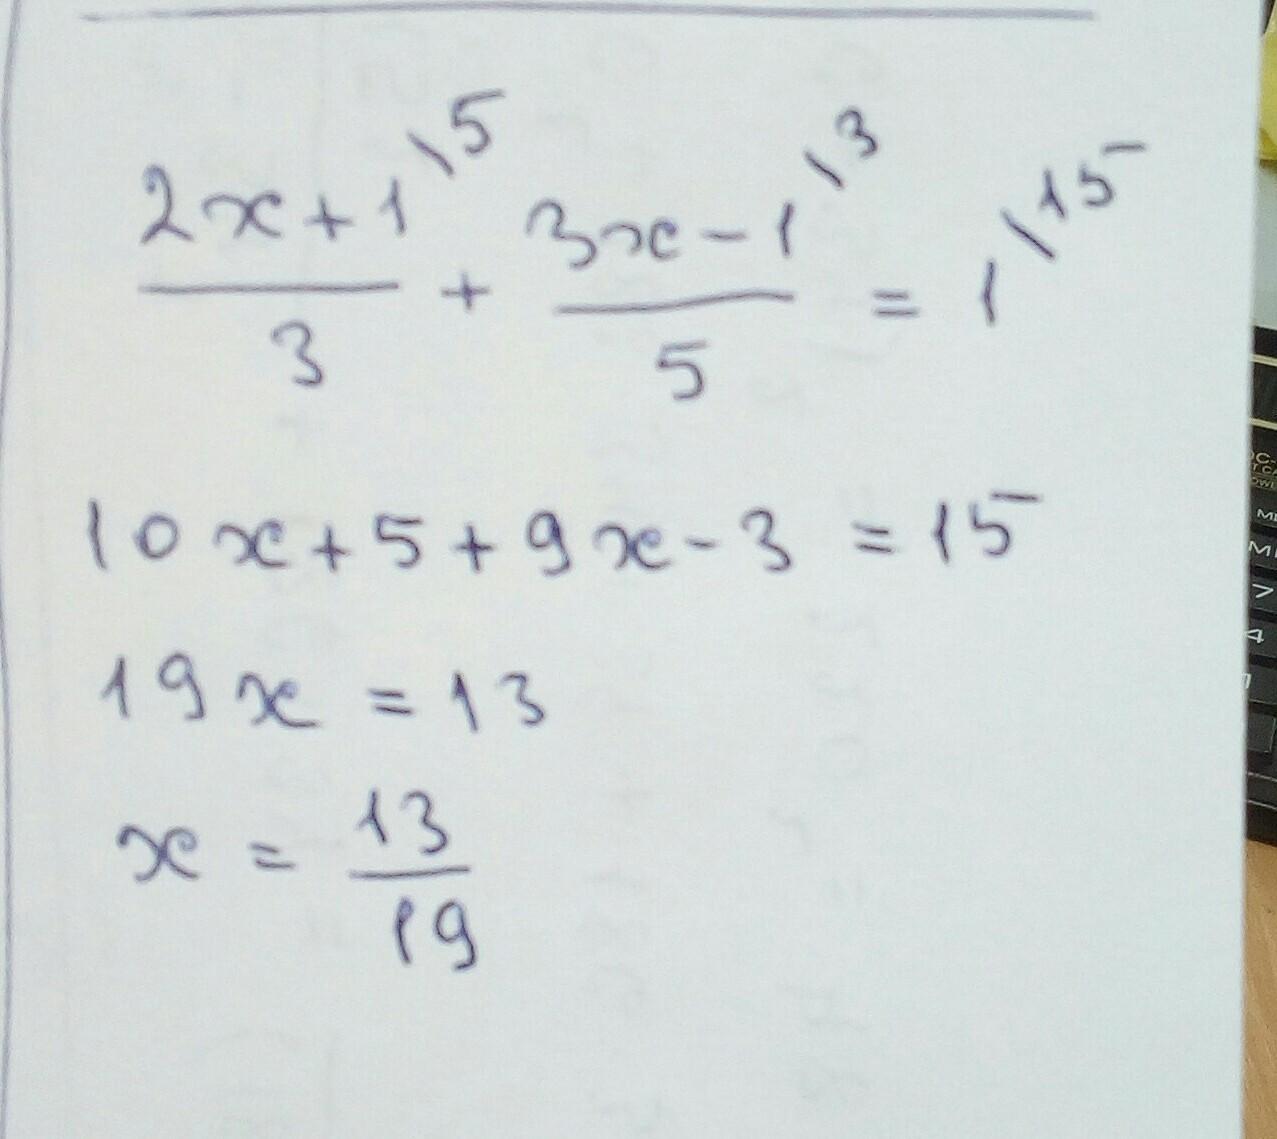 2x+1\5 / 3 + 3x-1\3 / 5 = 1\15
10x+5+9x-3 = 15
19x = 13
x = 13/19